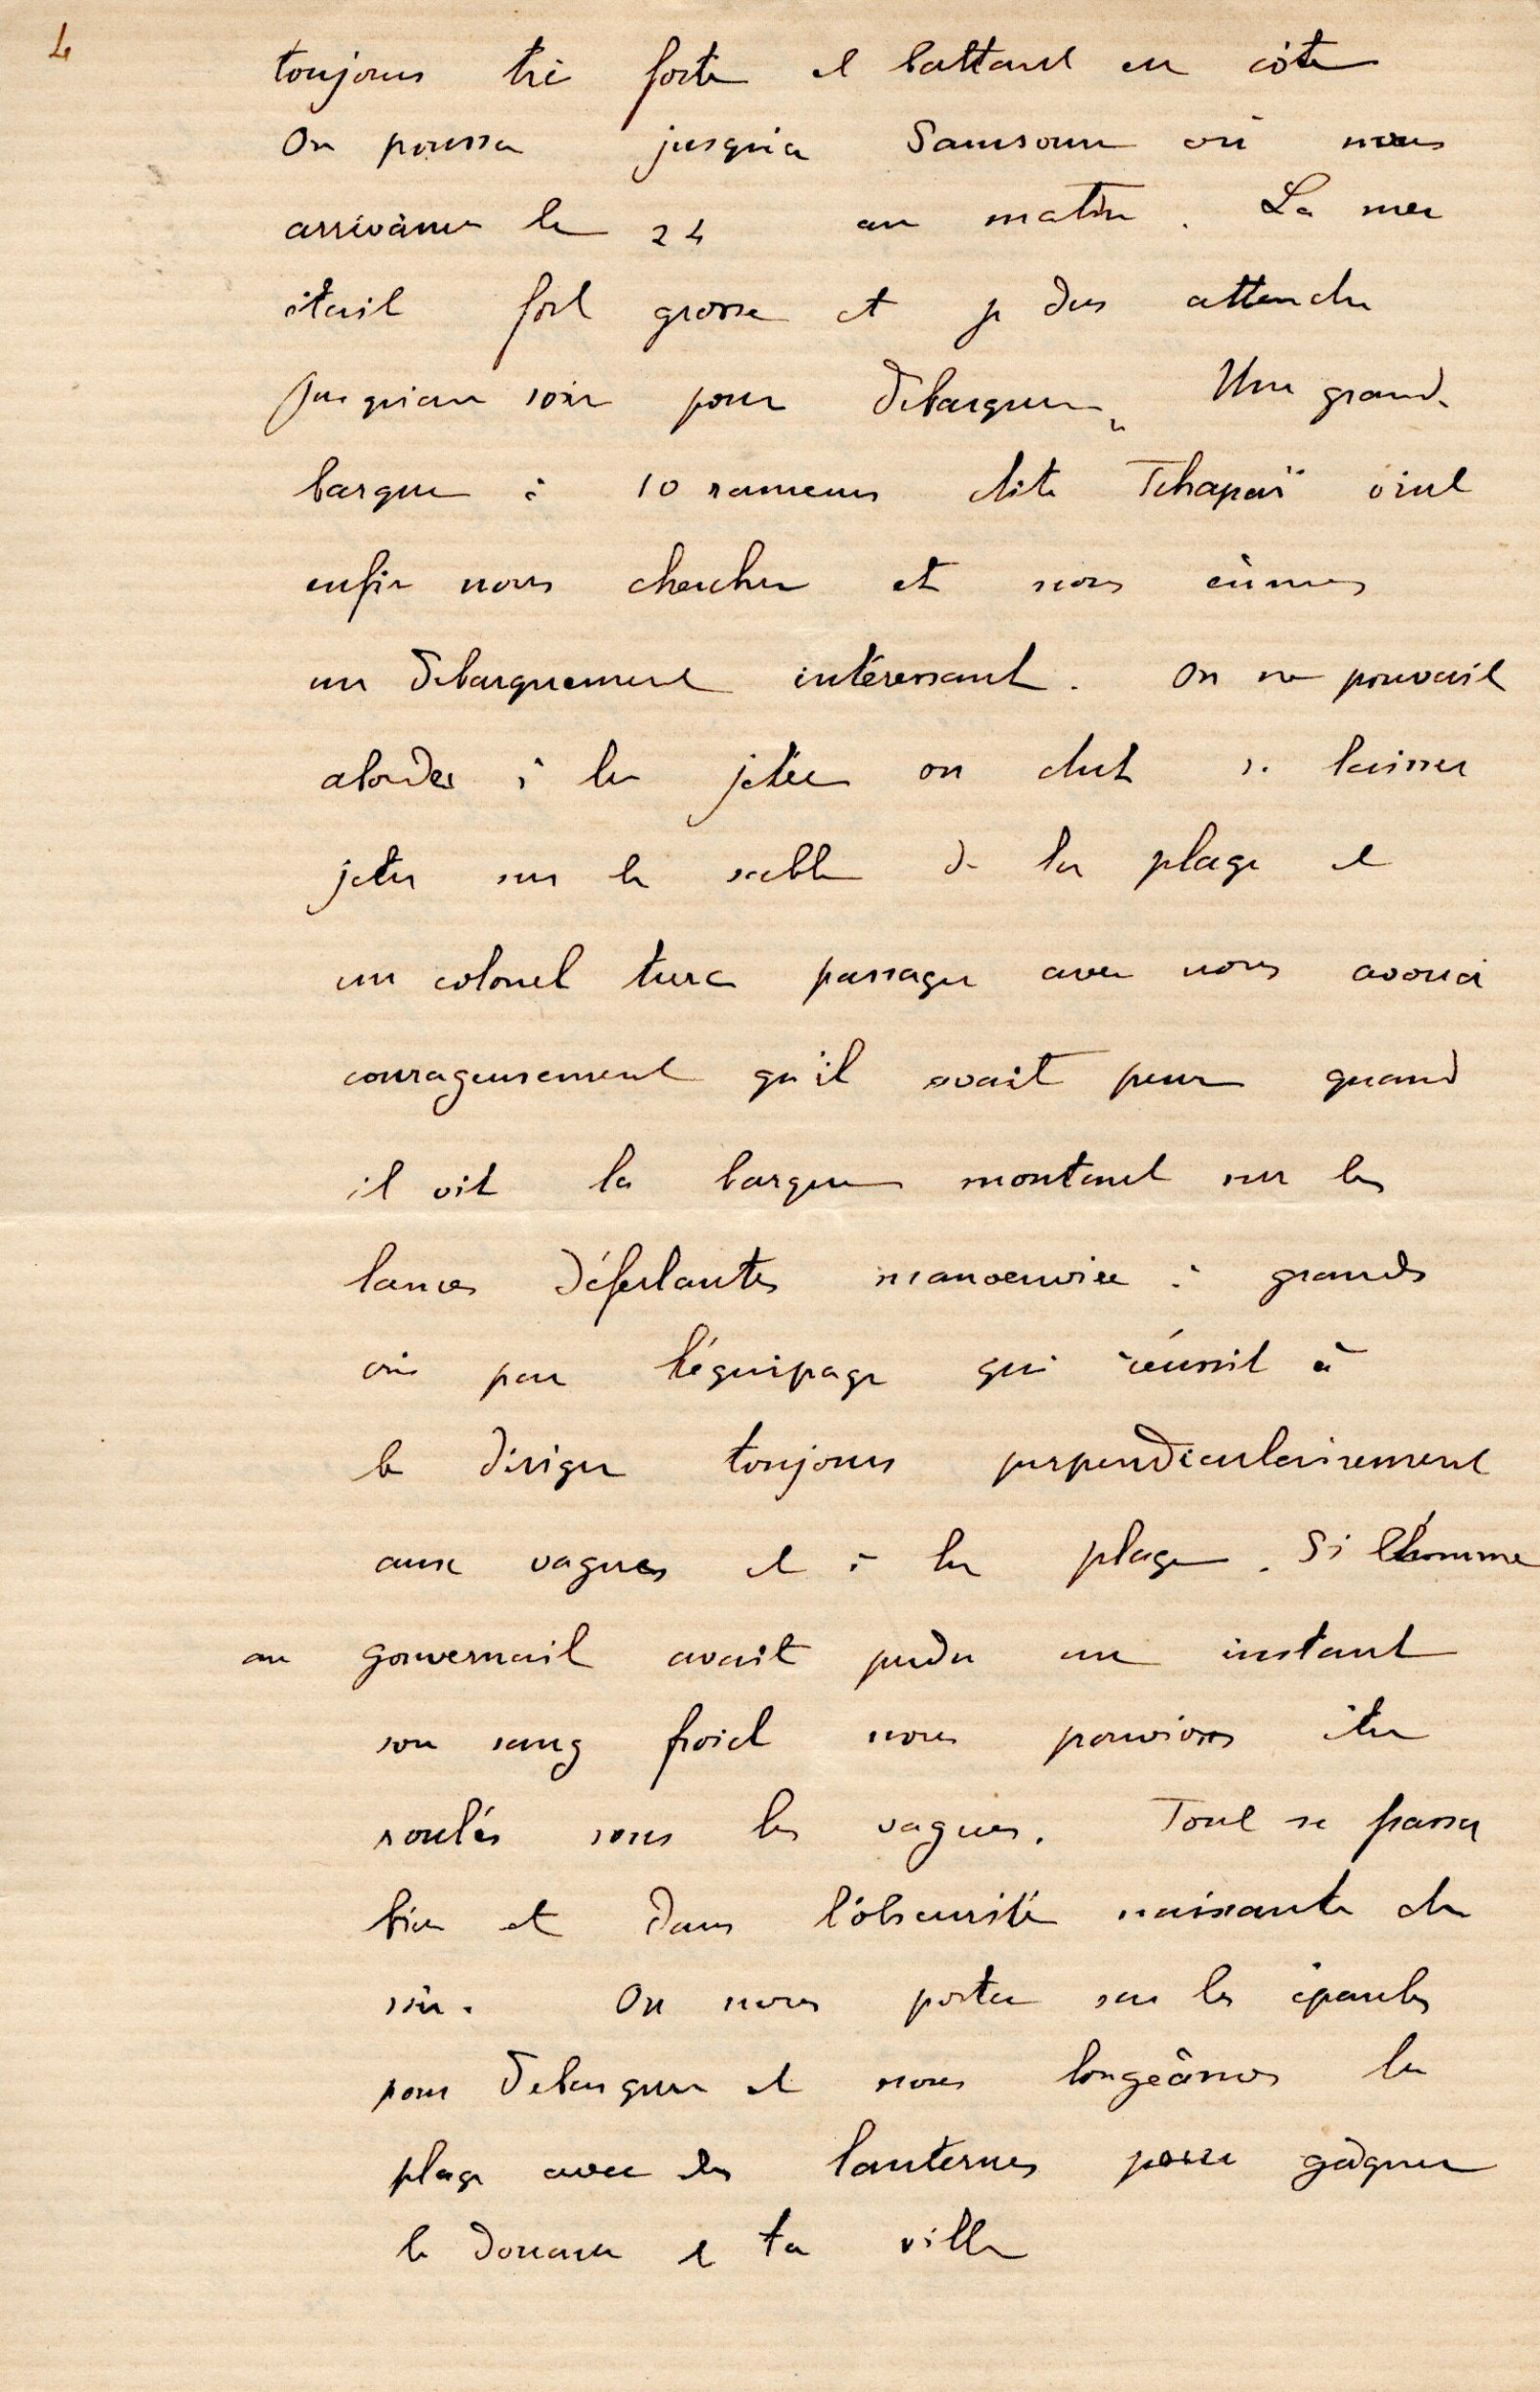 4
toujours très forte et battant en côte
On poussa jusqu'à Samsoun où nous
arrivâmes le 24 au matin. La mer
était fort grosse et je dus attendre
jusqu'au soir pour débarquer. Une grande
barque à 10 rameurs dite Tchapaï vint
enfin nous chercher et nous eûmes
un débarquement intéressant. On ne pouvait
aborder à la jetée on dut se laisser
jeter sur le sable de la plage et
un colonel turc passager avec nous avoua
courageusement qu'il avait peur quand
il vit la barque montant sur les
lames déferlantes manoeuvrée à grands
cris par l'équipage qui réussit à
la diriger toujours perpendiculairement
aux vagues et à la plage. Si l'homme
au gouvernail avait perdu un instant
son sang froid nous pouvions être
roulés sous les vagues. Tout se passa
bien et dans l'obscurité naissante du
soir. On nous porta sur les épaules
pour débarquer et nous longeâmes la
plage avec des lanternes pour gagner
la douane et la ville